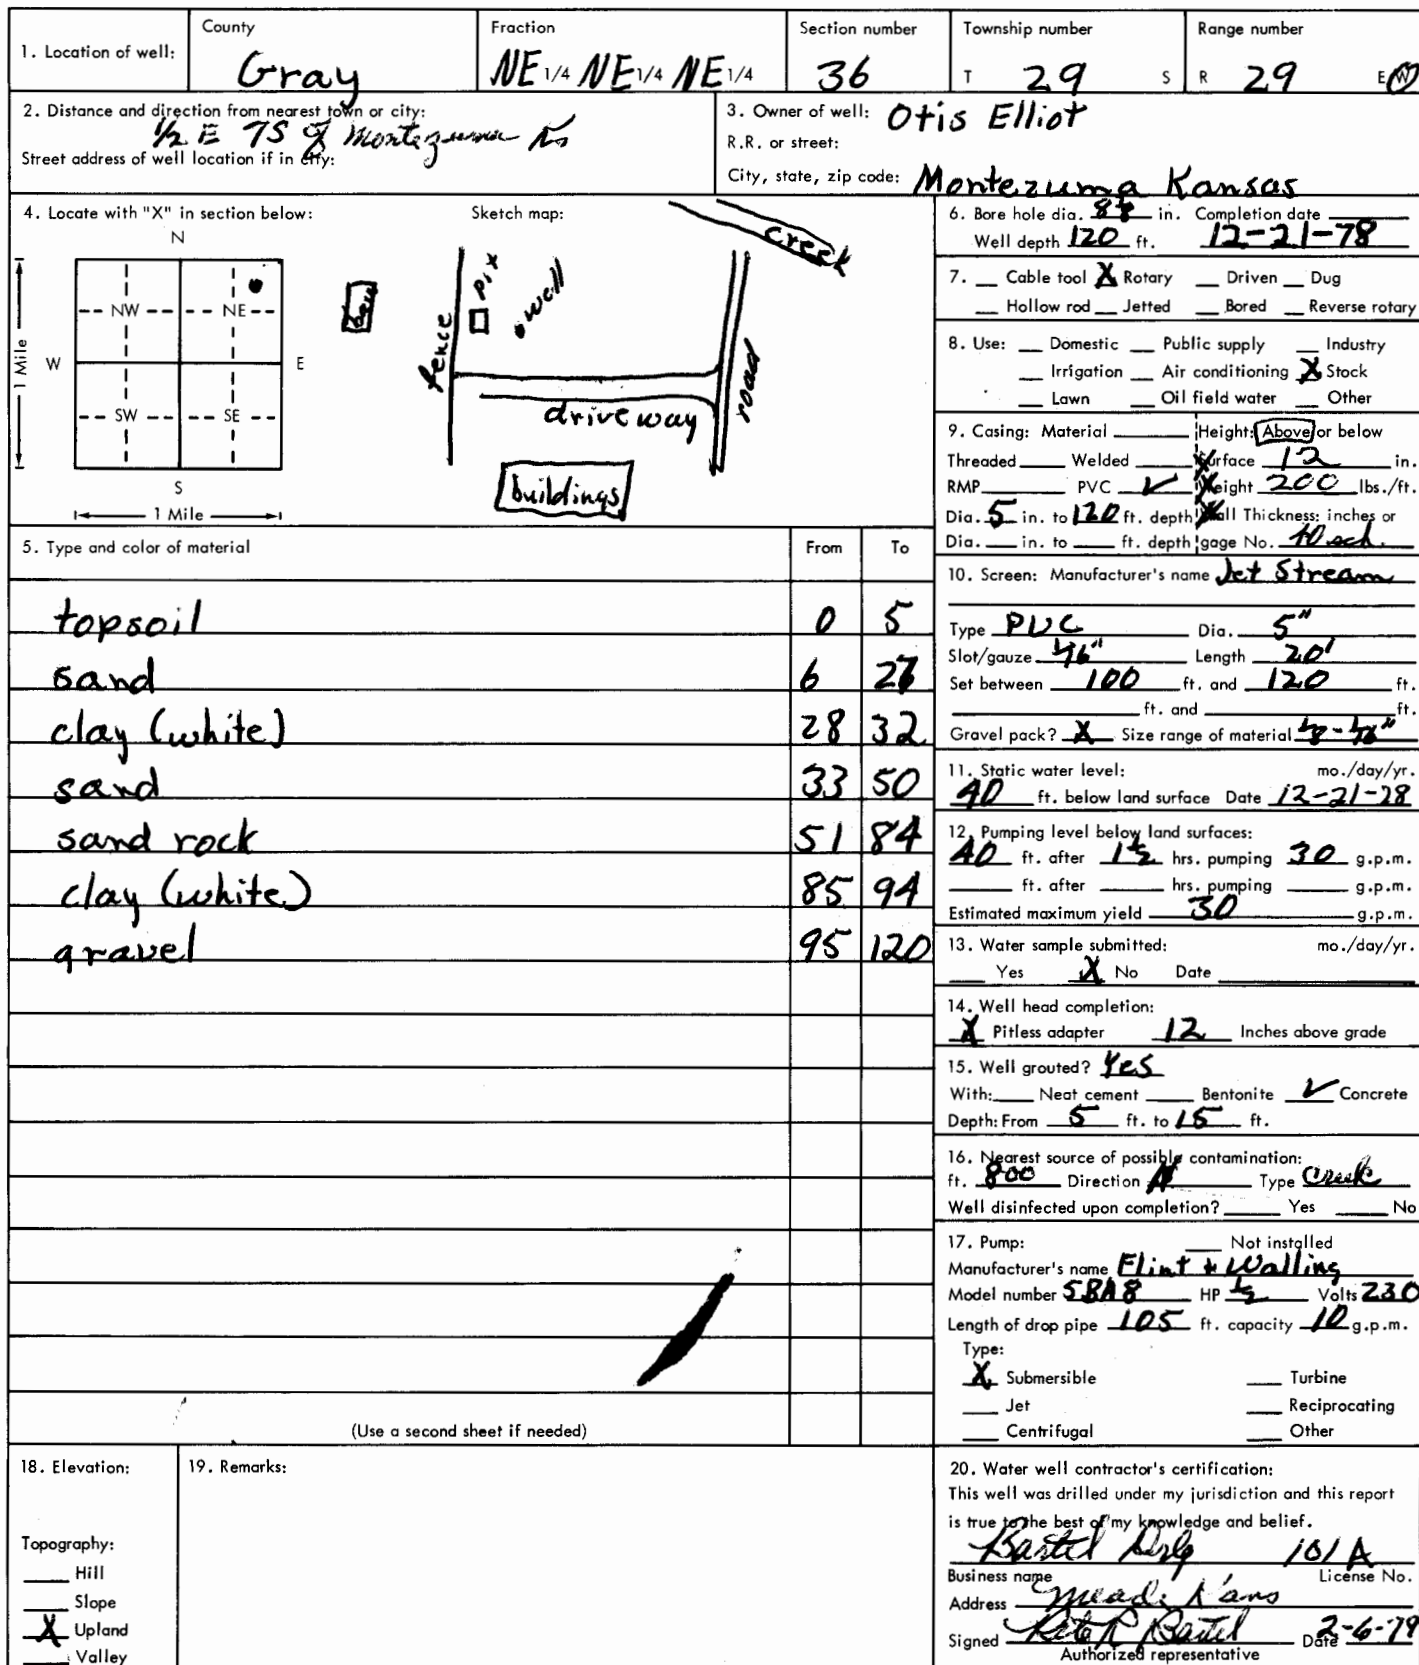 1. Location of well: County Gray Fraction NE 1/4 NE 1/4 NE 1/4 Section number 36 Township number T 29 S Range number R 29 E W
2. Distance and direction from nearest town or city:
1/2 E 7S of Montezuma Ks
Street address of well location if in city:
3. Owner of well: Otis Elliot
R.R. or street:
City, state, zip code: Montezuma Kansas
4. Locate with "X" in section below:
N
NW NE
W E
SW SE
S
1 Mile
1 Mile
Sketch map:
creek
fence
pit
well
road
driveway
buildings
5. Type and color of material From To
topsoil 0 5
sand 6 27
clay (white) 28 32
sand 33 50
sand rock 51 84
clay (white) 85 94
gravel 95 120
(Use a second sheet if needed)
6. Bore hole dia. in. Completion date
Well depth 120 ft. 12-21-78
7. Cable tool X Rotary Driven Dug
Hollow rod Jetted Bored Reverse rotary
8. Use: Domestic Public supply Industry
Irrigation Air conditioning X Stock
Lawn Oil field water Other
9. Casing: Material Height: Above or below
Threaded Welded Surface 12 in.
RMP PVC ✓ Weight 200 lbs./ft.
Dia. 5 in. to 120 ft. depth Wall Thickness: inches or
Dia. in. to ft. depth gage No. 40 sch.
10. Screen: Manufacturer's name Jet Stream
Type PVC Dia. 5"
Slot/gauze 1/16" Length 20'
Set between 100 ft. and 120 ft.
ft. and ft.
Gravel pack? X Size range of material 1/8 - 1/16"
11. Static water level: mo./day/yr.
40 ft. below land surface Date 12-21-78
12. Pumping level below land surfaces:
40 ft. after 1 1/2 hrs. pumping 30 g.p.m.
ft. after hrs. pumping g.p.m.
Estimated maximum yield 30 g.p.m.
13. Water sample submitted: mo./day/yr.
Yes X No Date
14. Well head completion:
X Pitless adapter 12 Inches above grade
15. Well grouted? Yes
With: Neat cement Bentonite ✓ Concrete
Depth: From 5 ft. to 15 ft.
16. Nearest source of possible contamination:
ft. 800 Direction N Type Creek
Well disinfected upon completion? Yes No
17. Pump: Not installed
Manufacturer's name Flint & Walling
Model number 5BA8 HP 1/2 Volts 230
Length of drop pipe 105 ft. capacity 10 g.p.m.
Type:
X Submersible Turbine
Jet Reciprocating
Centrifugal Other
18. Elevation:
Topography:
Hill
Slope
X Upland
Valley
19. Remarks:
20. Water well contractor's certification:
This well was drilled under my jurisdiction and this report
is true to the best of my knowledge and belief.
Bartel Drlg 101A
Business name License No.
Address Meade Kans
Signed Bartel Date 2-6-79
Authorized representative